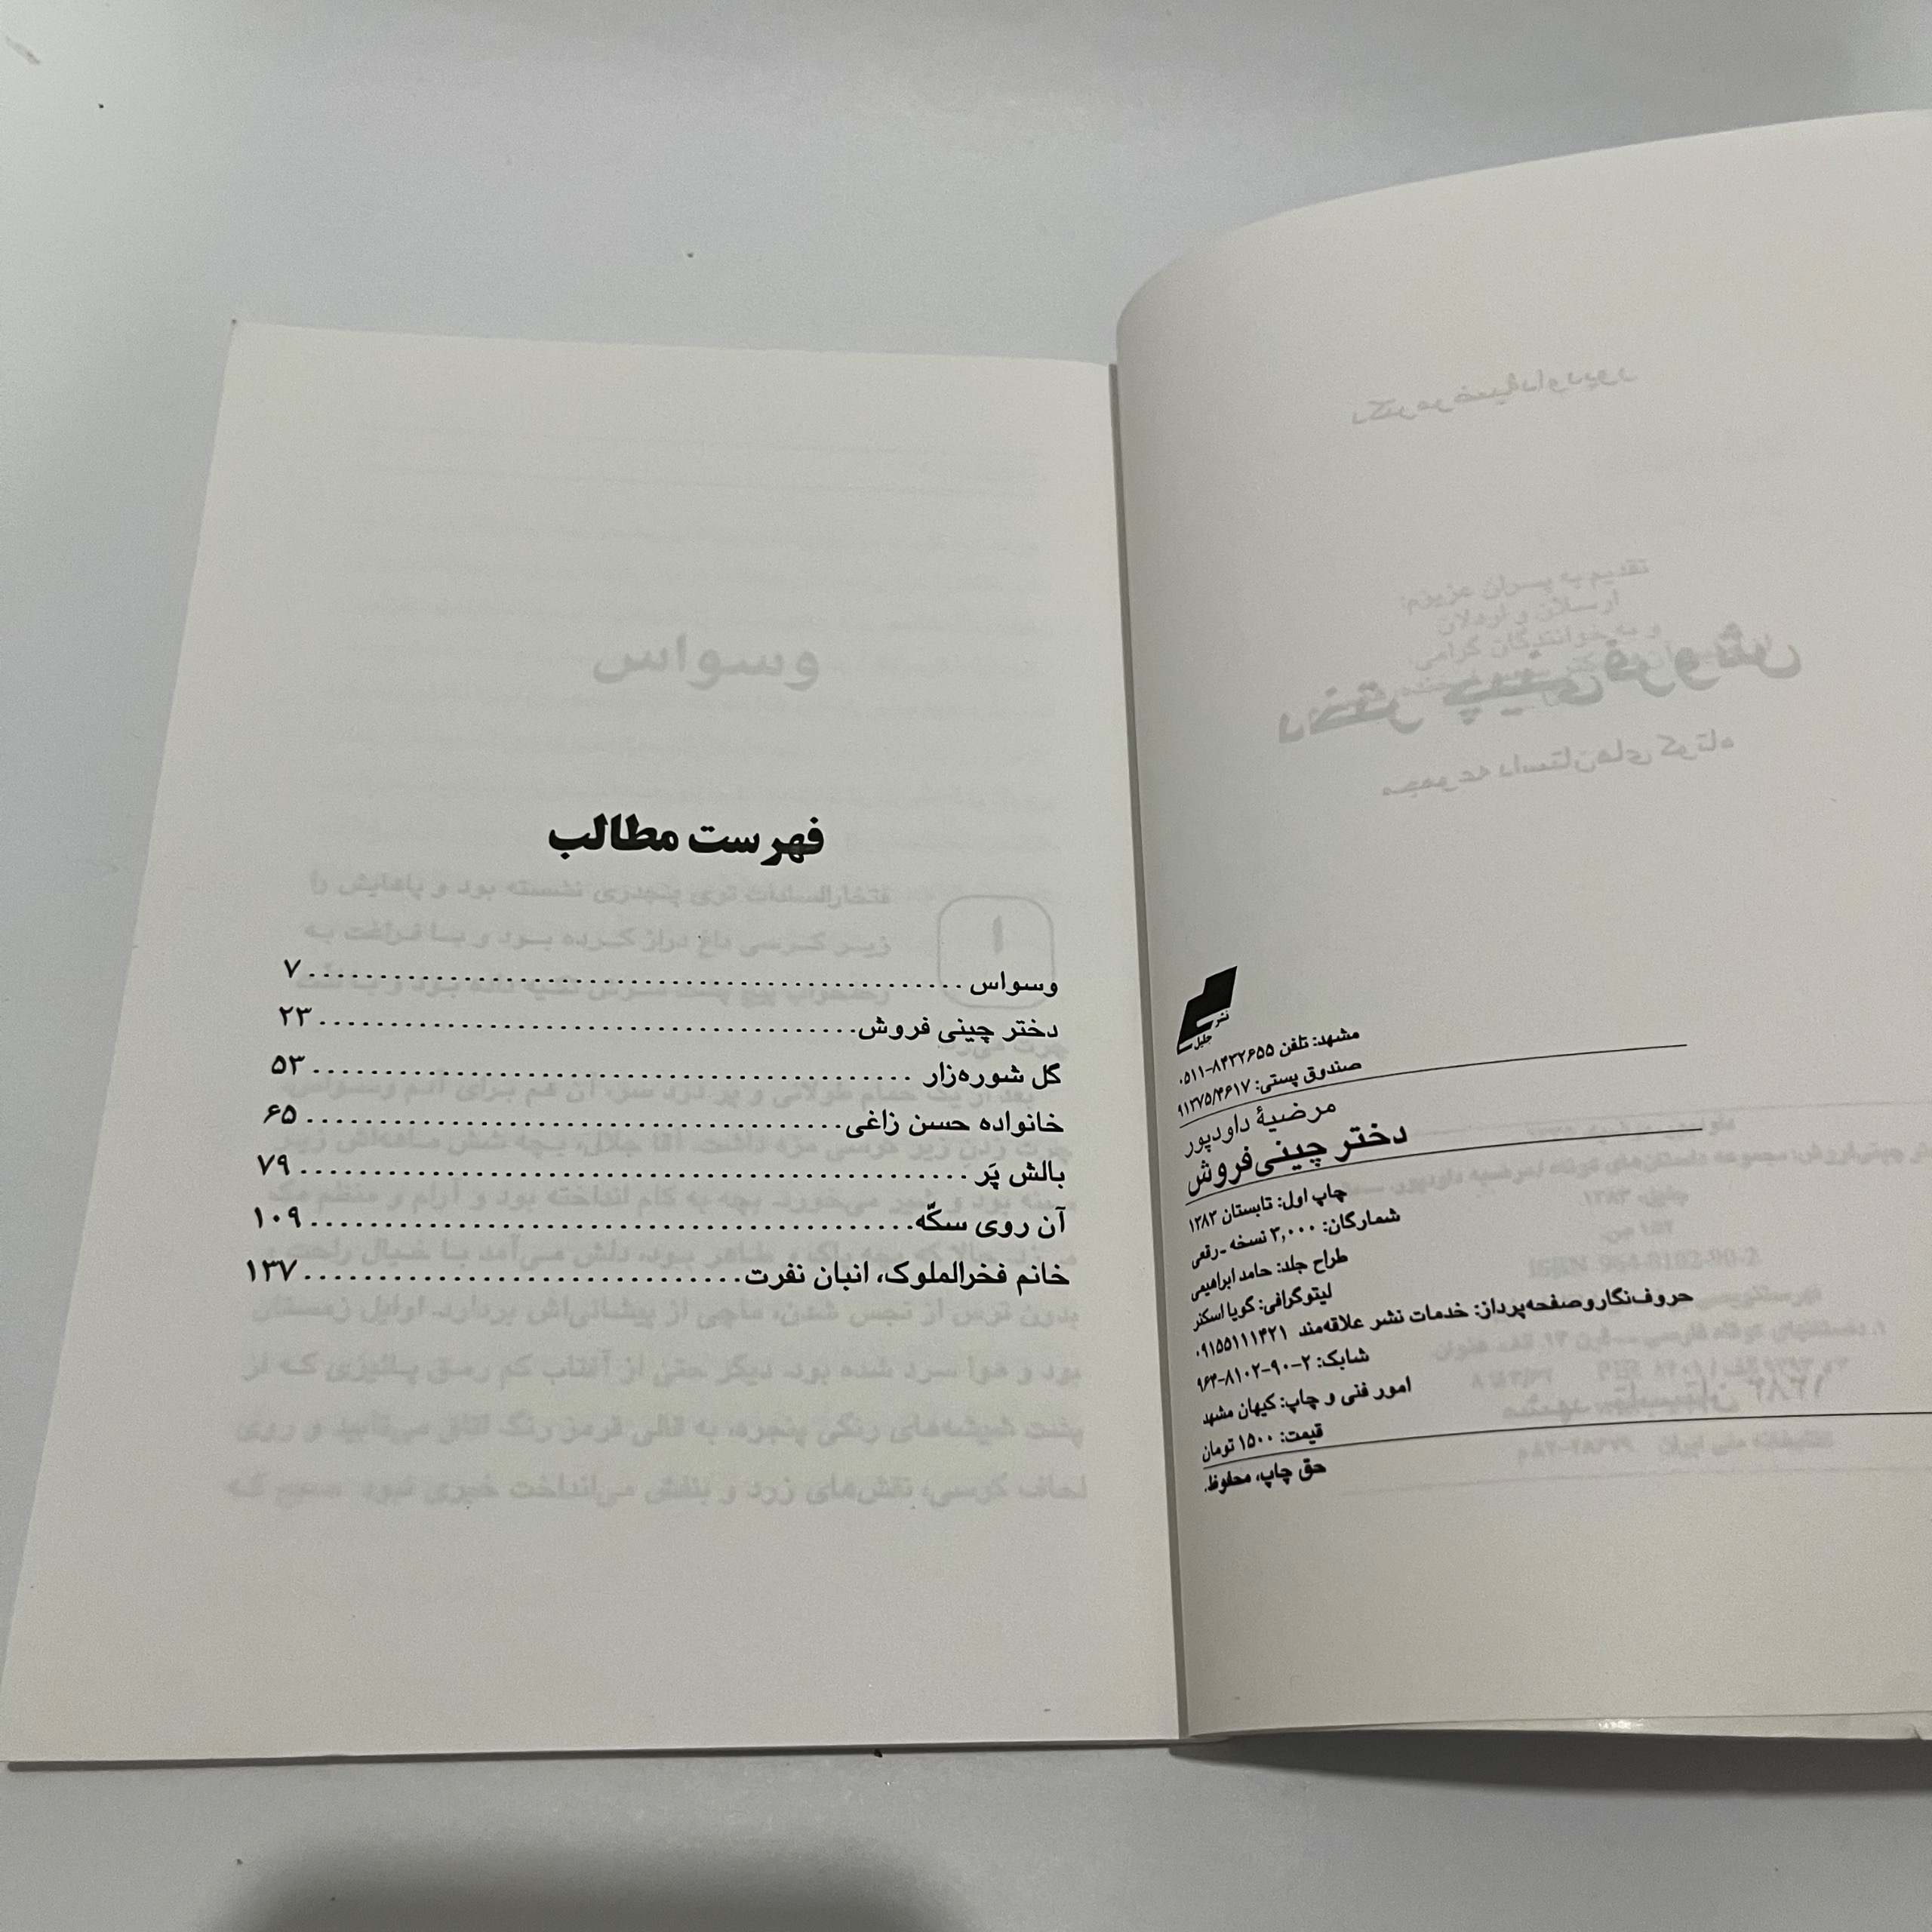 نشر جلیل
مشهد: تلفن ۸۴۳۲۶۵۵-۰۵۱۱
صندوق پستی: ۹۱۳۷۵/۴۶۱۷
مرضیهٔ داودپور
دختر چینی‌فروش
چاپ اول: تابستان ۱۳۸۳
شمارگان: ۳,۰۰۰ نسخه ـ رقعی
طراح جلد: حامد ابراهیمی
لیتوگرافی: گویا اسکنر
حروف‌نگار و صفحه‌پرداز: خدمات نشر علاقه‌مند ۰۹۱۵۵۱۱۱۴۲۱
شابک: ۲-۹۰-۸۱۰۲-۹۶۴
امور فنی و چاپ: کیهان مشهد
قیمت: ۱۵۰۰ تومان
حق چاپ، محفوظ.
فهرست مطالب
وسواس ۷
دختر چینی فروش ۲۳
گل شوره‌زار ۵۳
خانواده حسن زاغی ۶۵
بالش پَر ۷۹
آن روی سکّه ۱۰۹
خانم فخرالملوک، انبان نفرت ۱۳۷